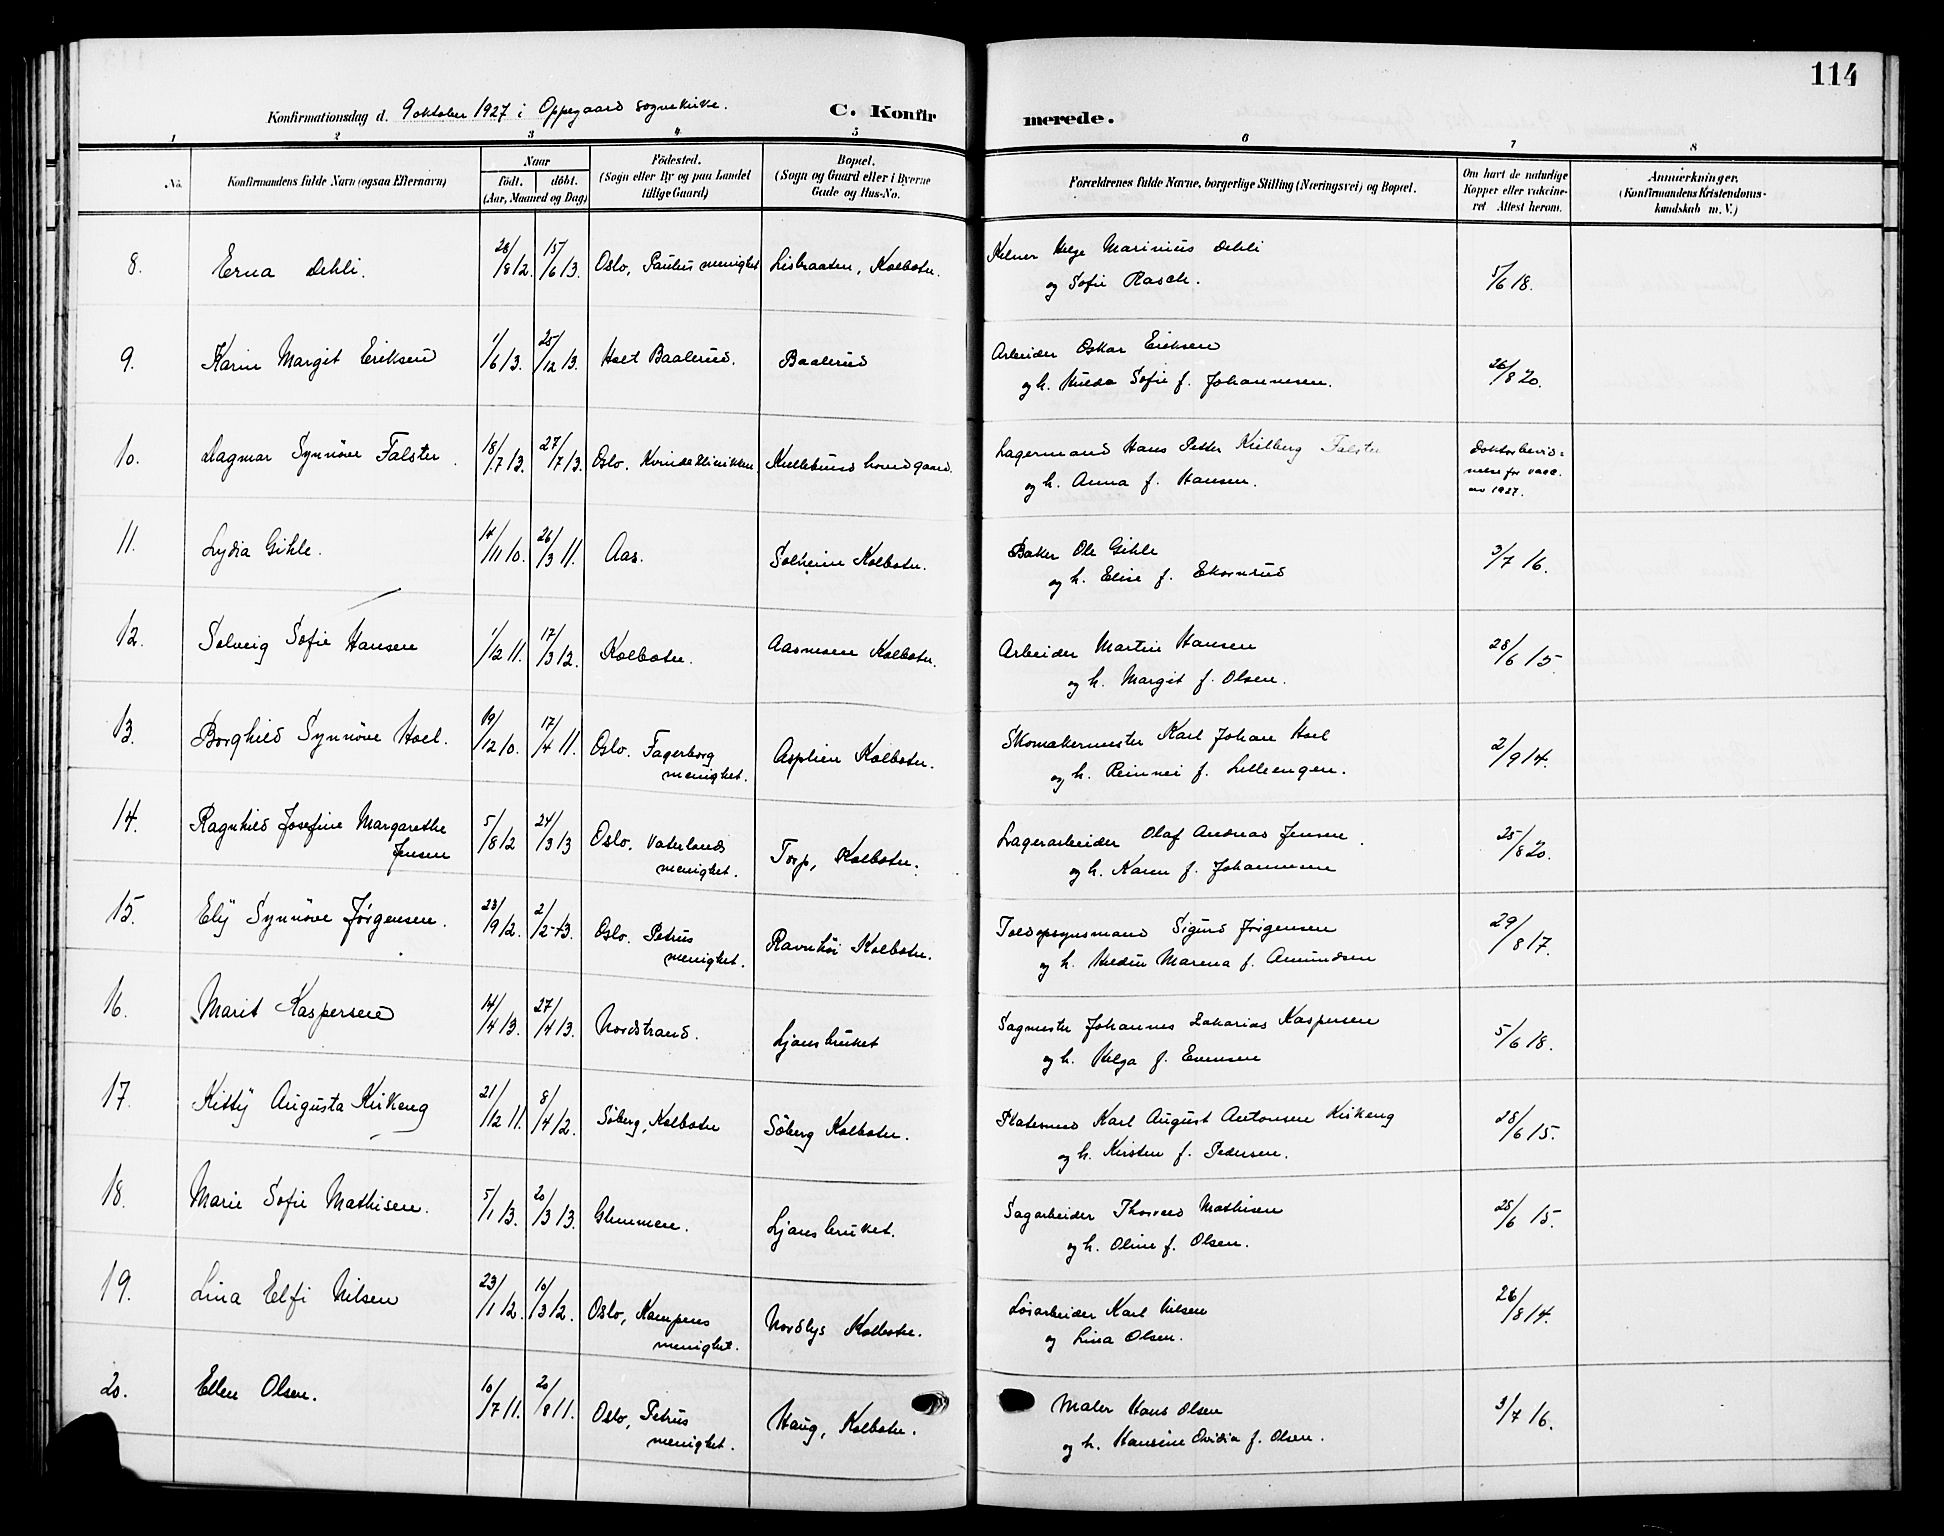 114
Konfirmationsdag d. 9 oktober 1927 i Oppegaard sognekirke.
C. Konfirmerede.
1 2 3 4 5 6 7 8
No.
Konfirmandens fulde Navn (ogsaa Efternavn)
Naar
født. døbt.
(Aar, Maaned og Dag)
Födested.
(Sogn eller By og paa Landet
tillige Gaard)
Bopæl.
(Sogn og Gaard eller i Byerne
Gade og Hus-No.
Forældrenes fulde Navne, borgerlige Stilling (Næringsvei) og Bopæl.
Om havt de naturlige
Kopper eller vakcine-
ret Attest herom.
Anmærkninger.
(Konfirmandens Kristendoms-
kundskab m. V.)
8. Erna Dehli. 28/8 12. 15/6 13. Oslo, Paulus menighet Kolbotn. Kelner Helge Marinius Dehli 5/6 18.
og Sofie Rasch.
9. Karin Margit Eriksen 1/6 13. 25/12 13. Holt Baalerud. Baalerud Arbeider Oskar Eriksen 26/8 20.
og h. Hulda Sofie f. Johannesen.
10. Dagmar Synnöve Falster. 18/7 13. 27/7 13. Oslo. Kvindeklinikken Kullebund hovedgaard. Lagermand Hans Petter Falster Doktorbevid=
og h. Anna f. Hansen. nelse for vacc.
1927.
11. Lydia Gihle. 14/11 10. 26/3 11. Aas. Solheim Kolbotn. Baker Ole Gihle 3/7 16.
og h. Elise f. Ekornrud
12. Solveig Sofie Hansen 1/12 11. 17/3 12. Kolbotn. Aasmoen Kolbotn. Arbeider Martin Hansen 28/6 15.
og h. Margit f. Olsen.
13. Borghild Synnöve Hoel. 19/12 10. 17/4 11. Oslo. Fagerborg Asplien Kolbotn. Skomakermester Karl Johan Hoel 2/9 14.
menighet. og h. f. Lilleengen.
14. Ragnhild Josefine Margarethe 5/8 12 24/3 13 Oslo. Vaterlands Torp, Kolbotn. Lagerarbeider Olaf Andreas Jensen. 25/8 20.
Jensen menighet. og h. Karen f. Johannesen
15. Ely Synnöve Jørgensen. 23/9 12. 2/2 13. Oslo. Petrus Ravnhöi Kolbotn. Toldopsynsmand Sigurd Jørgensen 29/8 17.
menighet. og h. Marena f. Amundsen
16. Marit Kaspersen 14/4 13. 27/4 13. Nordstrand. Ljansbruket Sagmester Johannes Zakarias Kaspersen 5/6 18.
og h. Helga f. Evensen
17. Kitty Augusta Kirkeng 21/12 11. 8/4 12. Söberg, Kolbotn Söberg Kolbotn. Karl August Antonsen Kirkeng 28/6 15.
og h. Kirsten f. Pedersen.
18. Marie Sofie Mathisen. 5/1 13. 20/3 13. Glemmen. Ljansbruket. Sagarbeider Thorvald Mathisen 28/6 15.
og h. Oline f. Olsen.
19. Lina Elfi Nilsen 23/1 12. 10/3 12. Oslo, Kampens Nordlys Kolbotn. Løsarbeider Karl Nilsen 26/8 14.
menighet. og Lina Olsen.
20. Ellen Olsen. 10/7 11. 20/8 11. Oslo, Petrus Haug, Kolbotn. Maler Hans Olsen 3/7 16.
menighet. og h. Hansine Ovidia f. Olsen.